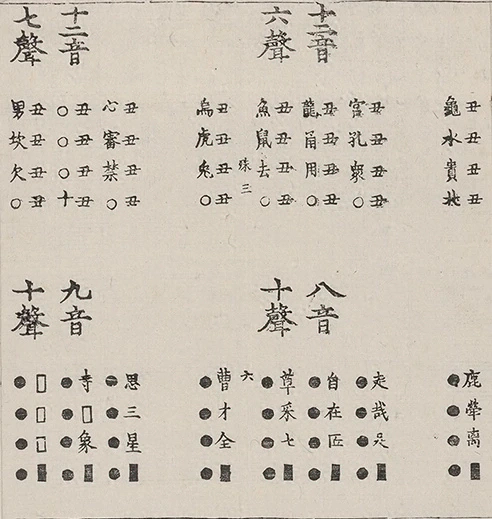 丑丑丑丑
龜水貴北
十二音
六聲
丑丑丑丑
宮孔衆○
丑丑丑丑
龍甬用○
丑丑丑丑
魚鼠去○
珠三
丑丑丑丑
烏虎兔○
十二音
七聲
丑丑丑丑
心審禁○
丑丑丑丑
○○○十
丑丑丑丑
男坎欠○
鹿犖离■
●●●●
八音
十聲
走哉■
●●●●
自在匝■
●●●●
草采七■
●●●●
六
曹才全■
●●●●
九音
十聲
思三星■
●●●●
寺□象■
●●●●
□□□■
●●●●